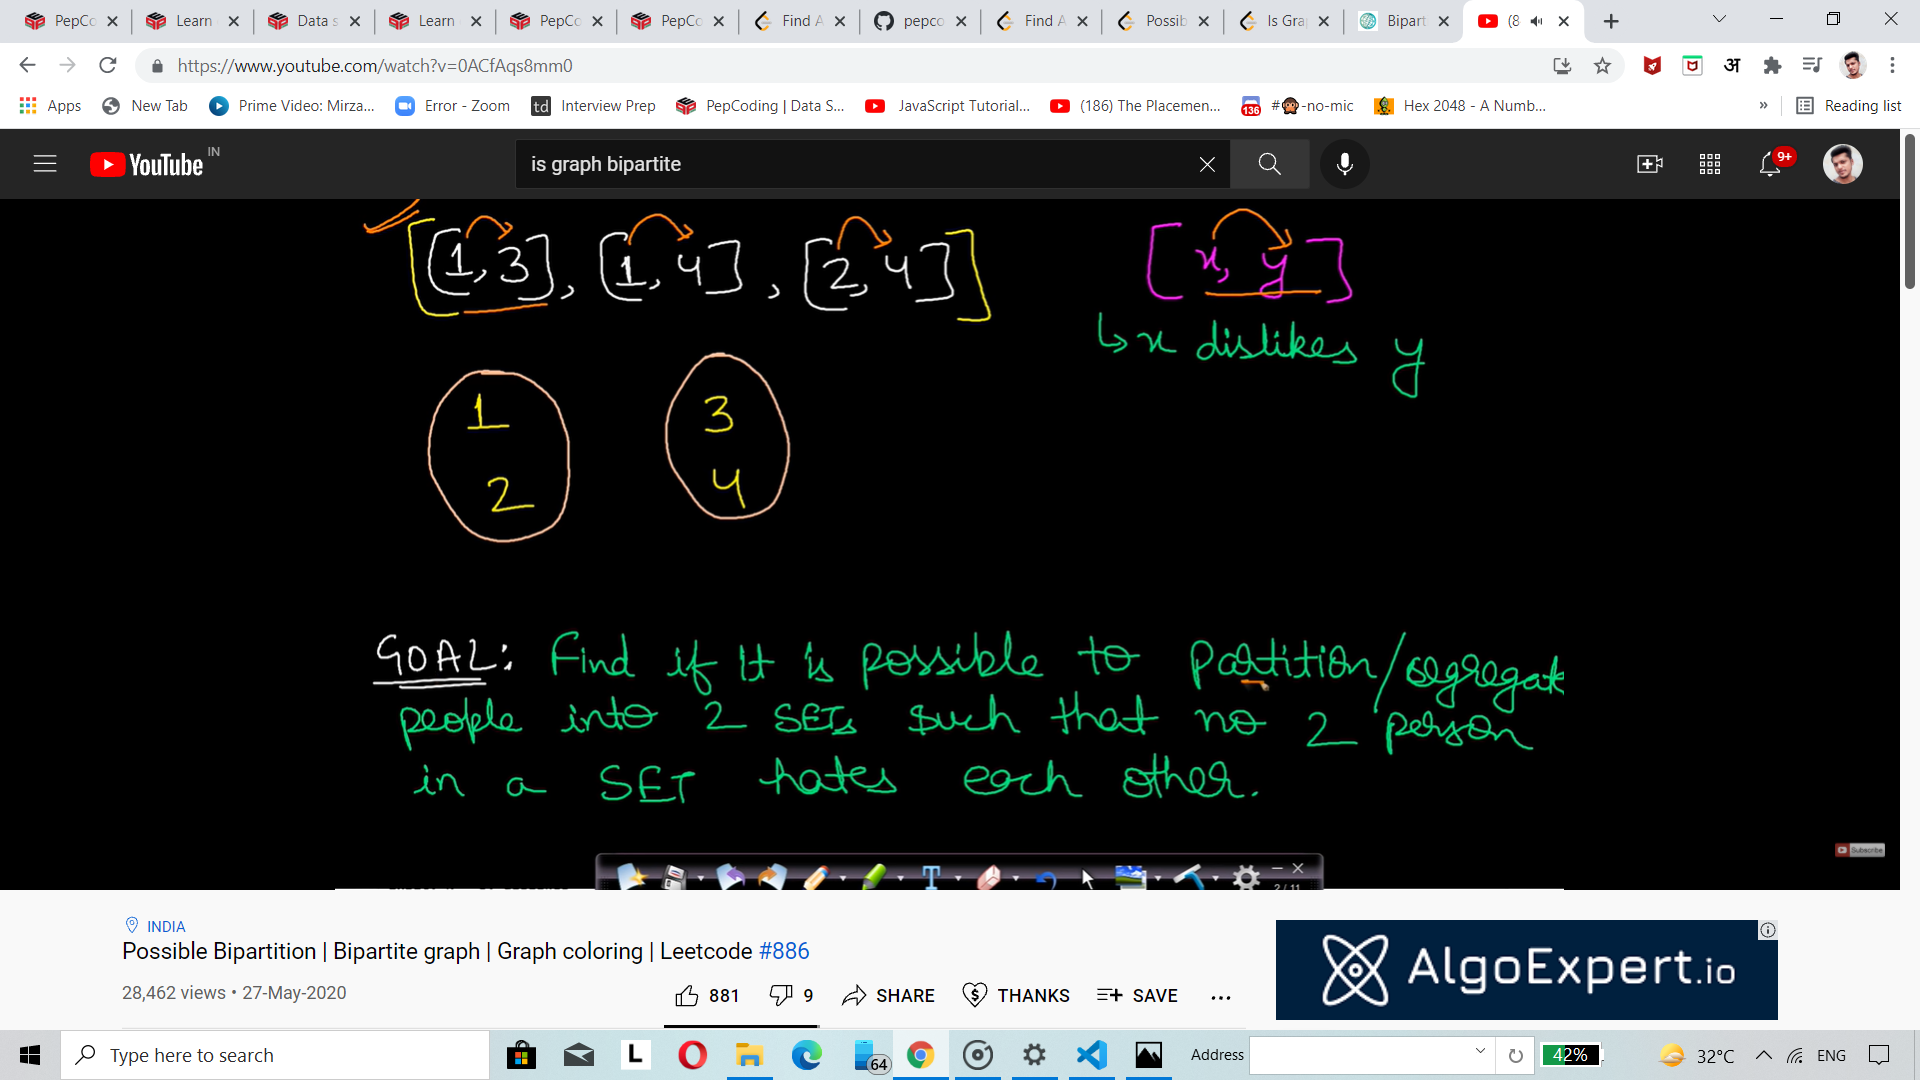 PepCo
Learn
Data s
Learn
PepCo
PepCo
Find A
pepco
Find A
Possib
Is Gra
Bipart
(8
https://www.youtube.com/watch?v=0ACfAqs8mm0
अ
Apps
New Tab
Prime Video: Mirza...
Error - Zoom
td
Interview Prep
PepCoding | Data S...
JavaScript Tutorial...
(186) The Placemen...
136
#🙊-no-mic
Hex 2048 - A Numb...
»
Reading list
YouTube IN
is graph bipartite
9+
[[1,3], [1,4], [2,4]]
[x, y]
↳ x dislikes y
1
2
3
4
GOAL: Find if it is possible to Partition/segregate
people into 2 SETs such that no 2 person
in a SET hates each other.
Subscribe
T
2 / 11
INDIA
Possible Bipartition | Bipartite graph | Graph coloring | Leetcode #886
28,462 views • 27-May-2020
881
9
SHARE
THANKS
SAVE
...
AlgoExpert.io
Type here to search
L
64
Address
42%
32°C
ENG